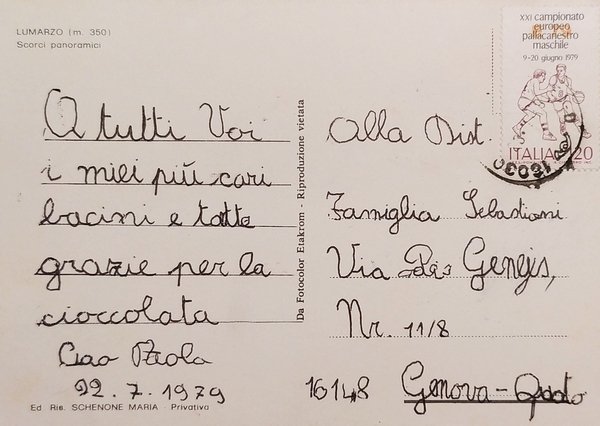 LUMARZO (m. 350)
Scorci panoramici
A tutti Voi
i miei più cari
bacini e tatte
grazie per la
cioccolata
Ciao Paola
22.7.1979
Ed Ris. SCHENONE MARIA - Privativa
Da Fotocolor Etakrom - Riproduzione vietata
XXI campionato
europeo
pallacanestro
maschile
9-20 giugno 1979
ITALIA 120
Alla Dist.
Famiglia Sebastiani
Via
Nr. 11/8
16148 Genova-Quarto